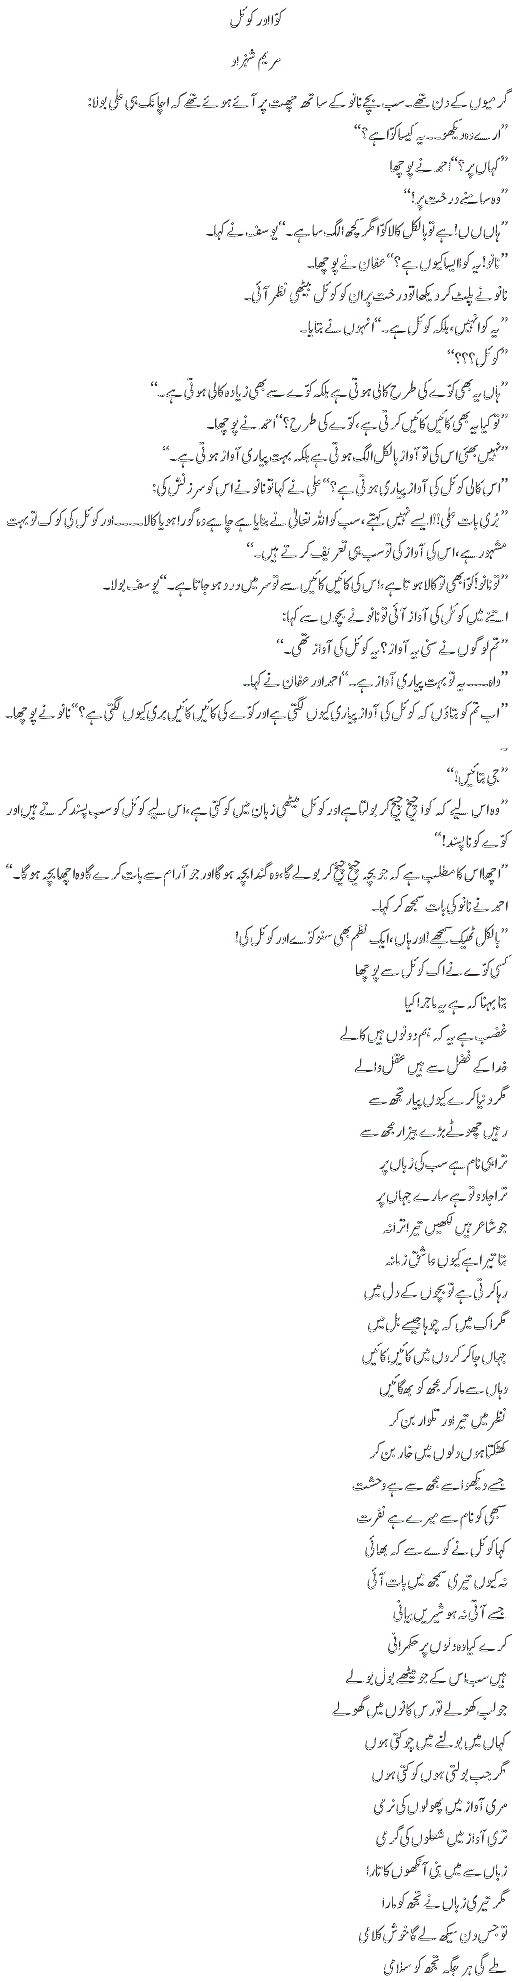 کوّا اور کوئل
مریم شہزاد
گرمیوں کے دن تھے۔ سب بچے نانو کے ساتھ چھت پر آئے ہوئے تھے کہ اچانک ہی علی بولا:
”ارے وہ دیکھو۔۔۔ یہ کیسا کوّا ہے؟“
”کہاں پر؟“ احمد نے پوچھا
”وہ سامنے درخت پر!“
”ہاں ں ں! ہے تو بالکل کالا کوّا مگر کچھ الگ سا ہے۔“ یوسف نے کہا۔
”نانو! یہ کوّا ایسا کیوں ہے؟“ عفان نے پوچھا۔
نانو نے پلٹ کر دیکھا تو درخت پر ان کو کوئل بیٹھی نظر آئی۔
”یہ کوا نہیں، بلکہ کوئل ہے۔“ انہوں نے بتایا۔
”کوئل؟؟؟“
”ہاں یہ بھی کوّے کی طرح کالی ہوتی ہے بلکہ کوّے سے بھی زیادہ کالی ہوتی ہے۔“
”تو کیا یہ بھی کائیں کائیں کرتی ہے، کوّے کی طرح؟“ احمد نے پوچھا۔
”نہیں بھئی اس کی تو آواز بالکل الگ ہوتی ہے بلکہ بہت پیاری آواز ہوتی ہے۔“
”اس کالی کوئل کی آواز پیاری ہوتی ہے؟“ علی نے کہا تو نانو نے اس کو سرزنش کی:
”بُری بات علی!! ایسے نہیں کہتے، سب کو اللہ تعالیٰ نے بنایا ہے چاہے وہ گورا ہو یا کالا۔۔۔۔۔ اور کوئل کی کوک تو بہت
مشہور ہے، اس کی آواز کی تو سب ہی تعریف کرتے ہیں۔“
”تو نانو! کوّا بھی تو کالا ہوتا ہے، اس کی کائیں کائیں سے تو سر میں درد ہو جاتا ہے۔“ یوسف بولا۔
اتنے میں کوئل کی آواز آئی تو نانو نے بچوں سے کہا:
”تم لوگوں نے سنی یہ آواز؟ یہ کوئل کی آواز تھی۔“
”واہ۔۔۔۔ یہ تو بہت پیاری آواز ہے۔“ احمد اور عفان نے کہا۔
”اب تم کو بتاؤں کہ کوئل کی آواز پیاری کیوں لگتی ہے اور کوّے کی کائیں کائیں بری کیوں لگتی ہے؟“ نانو نے پوچھا۔
۔
”جی بتائیں!“
”وہ اس لیے کہ کوا چیخ چیخ کر بولتا ہے اور کوئل میٹھی زبان میں کوکتی ہے، اس لیے کوئل کو سب پسند کرتے ہیں اور
کوّے کو ناپسند!“
”اچھا! اس کا مطلب ہے کہ جو بچہ چیخ چیخ کر بولے گا، وہ گندا بچہ ہو گا اور جو آرام سے بات کرے گا وہ اچھا بچہ ہو گا۔“
احمد نے نانو کی بات سمجھ کر کہا۔
”بالکل ٹھیک سمجھے! اور ہاں، ایک نظم بھی سنو کوّے اور کوئل کی!
کسی کوّے نے اک کوئل سے پوچھا
بتا بہنا کہ ہے یہ ماجرا کیا
غضب ہے یہ کہ ہم دونوں ہیں کالے
خدا کے فضل سے ہیں عقل والے
مگر دنیا کرے کیوں پیار تجھ سے
رہیں چھوٹے بڑے بیزار مجھ سے
ترا ہی نام ہے سب کی زباں پر
ترا جادو تو ہے سارے جہاں پر
جو شاعر ہیں لکھیں تیرا ترانہ
بتا تیرا ہے کیوں عاشق زمانہ
رہا کرتی ہے تو بچوں کے دل میں
مگر اک میں کہ چوہا جیسے بل میں
جہاں جا کر کروں میں کائیں کائیں
وہاں سے مار کر مجھ کو بھگائیں
نظر میں تیر اور تلوار بن کر
کھٹکتا ہوں دلوں میں خار بن کر
جسے دیکھو اسے مجھ سے ہے وحشت
سبھی کو نام سے میرے ہے نفرت
کہا کوئل نے کوے سے کہ بھائی
نہ کیوں تیری سمجھ میں بات آئی
جسے آتی نہ ہو شیریں بیانی
کرے کیا وہ دلوں پر حکمرانی
ہیں سب اس کے جو میٹھے بول بولے
جو لب کھولے تو رس کانوں میں گھولے
کہاں میں بولنے میں چوکتی ہوں
مگر جب بولتی ہوں کوکتی ہوں
مری آواز میں پھولوں کی نرمی
تری آواز میں شعلوں کی گرمی
زباں سے میں بنی آنکھوں کا تارا
مگر تیری زباں نے تجھ کو مارا
تو جس دن سیکھ لے گا خوش کلامی
ملے گی ہر جگہ تجھ کو سلامی